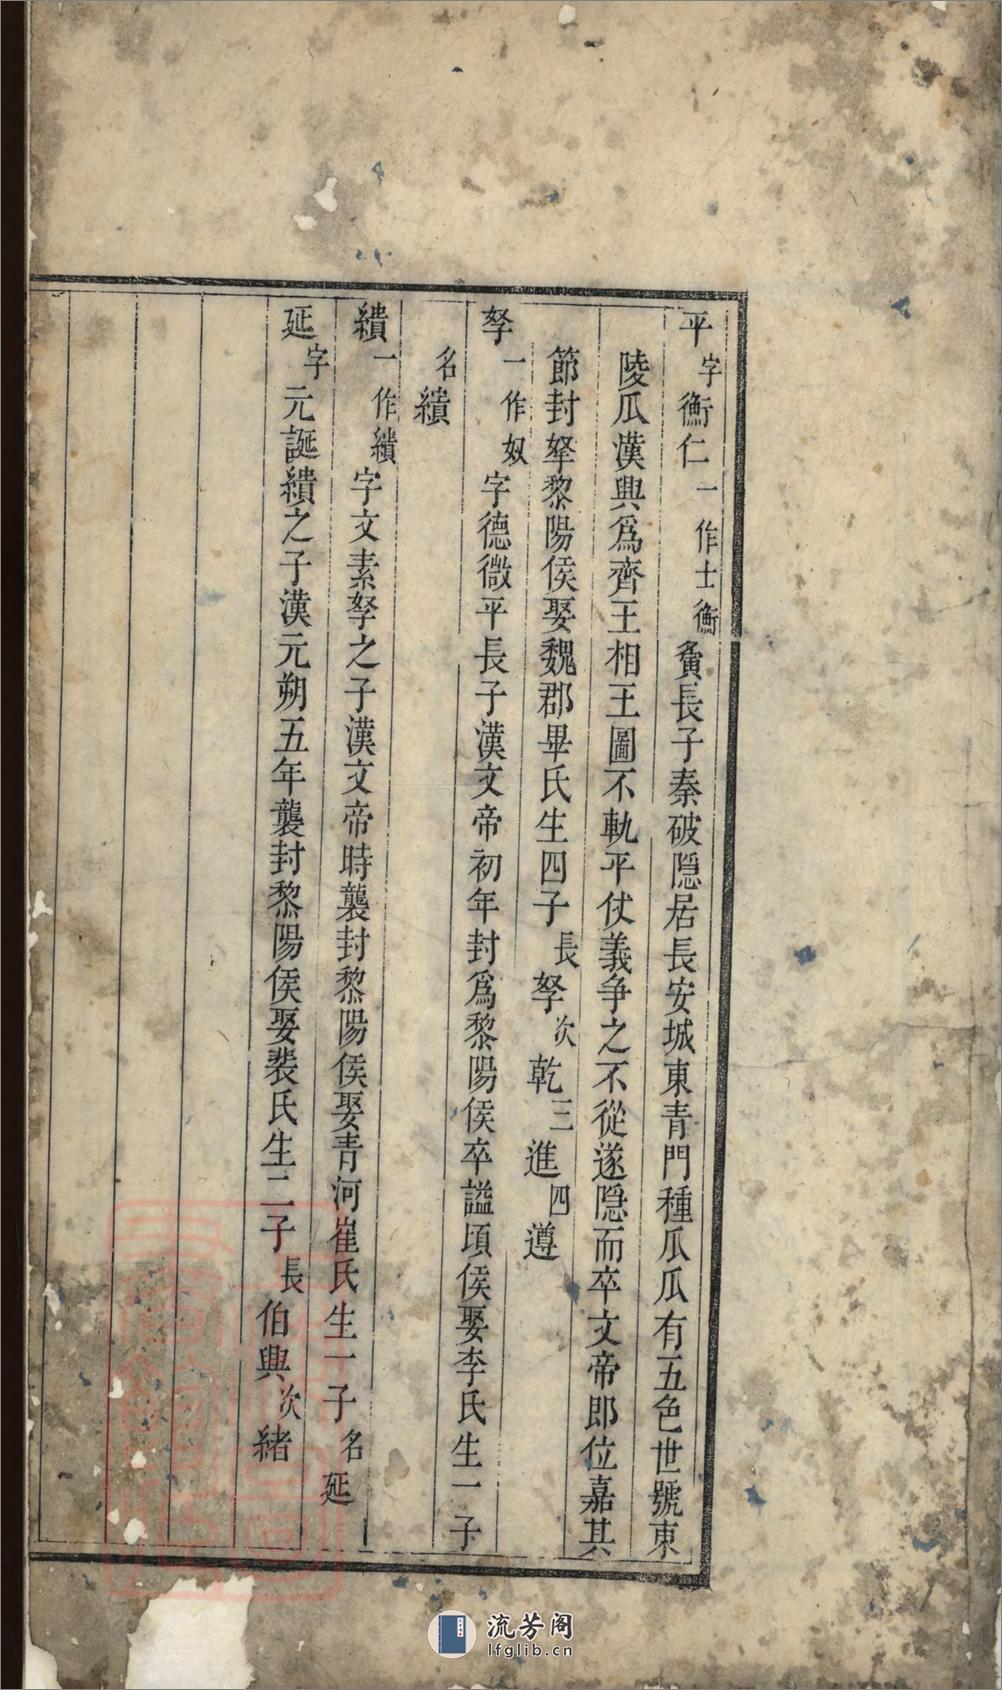 平字衡仁一作士衡黃長子秦破隱居長安城東青門種瓜瓜有五色世號東
陵瓜漢興爲齊王相王圖不軌平仗義爭之不從遂隱而卒文帝即位嘉其
節封孥黎陽侯娶魏郡畢氏生四子長孥次乾三進四遵
孥一作奴字德微平長子漢文帝初年封爲黎陽侯卒謚頃侯娶李氏生一子
名續
續一作績字文素孥之子漢文帝時襲封黎陽侯娶青河崔氏生一子名延
延字元誕續之子漢元朔五年襲封黎陽侯娶裴氏生二子長伯興次緒
流芳阁
lfglib.cn